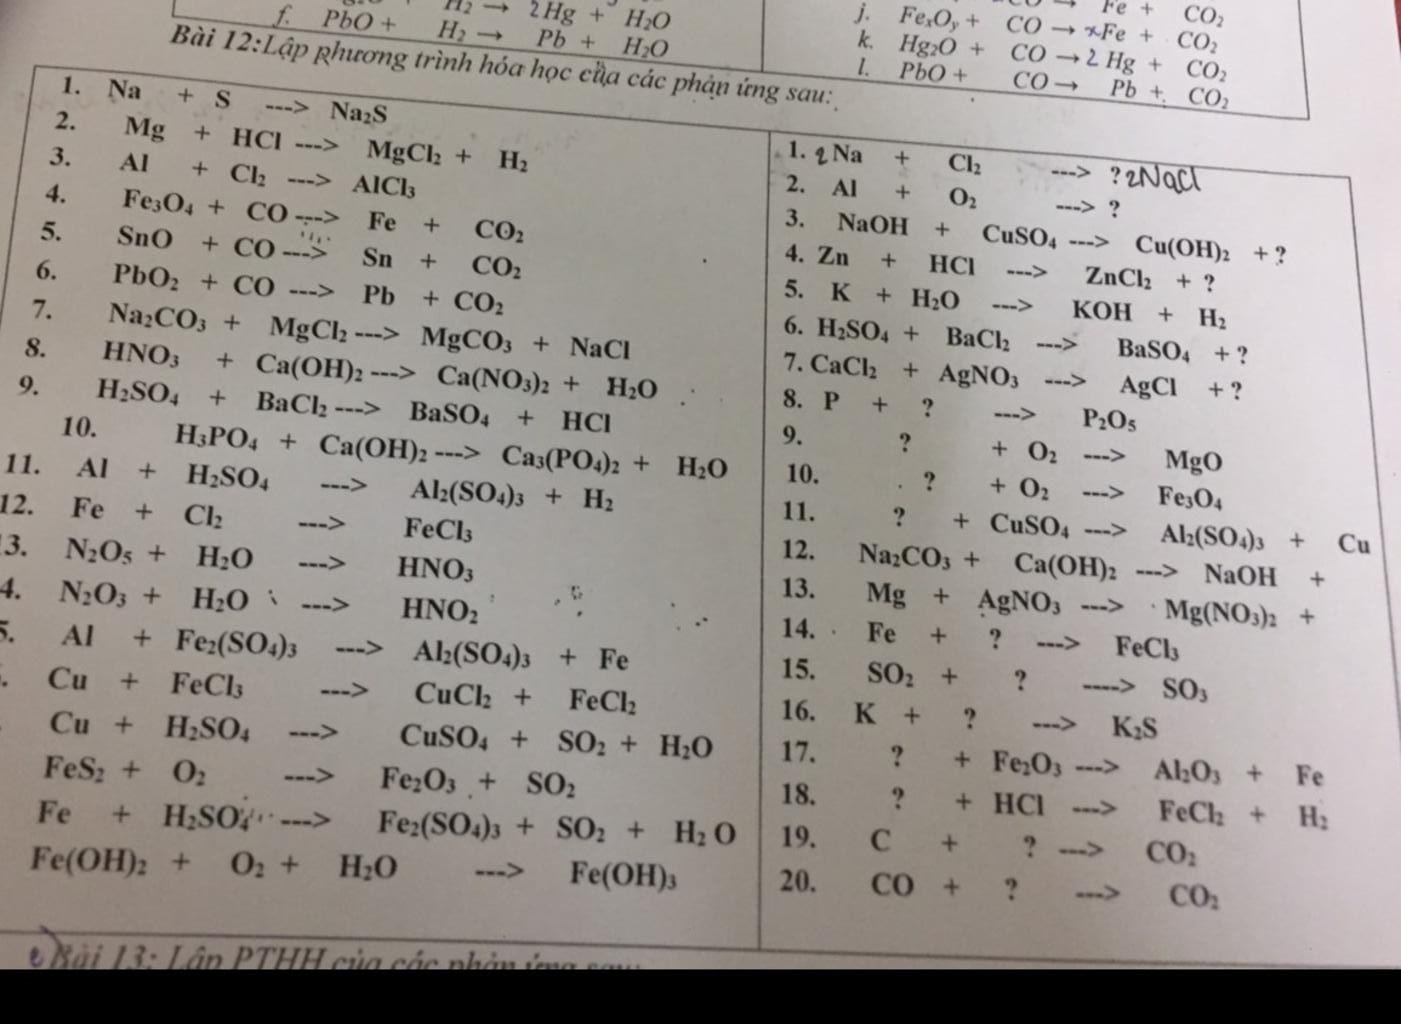 H₂ → 2Hg + H₂O
f. PbO + H₂ → Pb + H₂O
Fe + CO₂
j. FeₓOᵧ + CO → xFe + CO₂
k. Hg₂O + CO → 2 Hg + CO₂
l. PbO + CO → Pb + CO₂
Bài 12:Lập phương trình hóa học của các phản ứng sau:
1. Na + S ---> Na₂S
2. Mg + HCl ---> MgCl₂ + H₂
3. Al + Cl₂ ---> AlCl₃
4. Fe₃O₄ + CO ---> Fe + CO₂
5. SnO + CO ---> Sn + CO₂
6. PbO₂ + CO ---> Pb + CO₂
7. Na₂CO₃ + MgCl₂ ---> MgCO₃ + NaCl
8. HNO₃ + Ca(OH)₂ ---> Ca(NO₃)₂ + H₂O
9. H₂SO₄ + BaCl₂ ---> BaSO₄ + HCl
10. H₃PO₄ + Ca(OH)₂ ---> Ca₃(PO₄)₂ + H₂O
11. Al + H₂SO₄ ---> Al₂(SO₄)₃ + H₂
12. Fe + Cl₂ ---> FeCl₃
3. N₂O₅ + H₂O ---> HNO₃
4. N₂O₃ + H₂O ---> HNO₂
5. Al + Fe₂(SO₄)₃ ---> Al₂(SO₄)₃ + Fe
Cu + FeCl₃ ---> CuCl₂ + FeCl₂
Cu + H₂SO₄ ---> CuSO₄ + SO₂ + H₂O
FeS₂ + O₂ ---> Fe₂O₃ + SO₂
Fe + H₂SO₄ ---> Fe₂(SO₄)₃ + SO₂ + H₂O
Fe(OH)₂ + O₂ + H₂O ---> Fe(OH)₃
1. 2Na + Cl₂ ---> ? 2NaCl
2. Al + O₂ ---> ?
3. NaOH + CuSO₄ ---> Cu(OH)₂ + ?
4. Zn + HCl ---> ZnCl₂ + ?
5. K + H₂O ---> KOH + H₂
6. H₂SO₄ + BaCl₂ ---> BaSO₄ + ?
7. CaCl₂ + AgNO₃ ---> AgCl + ?
8. P + ? ---> P₂O₅
9. ? + O₂ ---> MgO
10. ? + O₂ ---> Fe₃O₄
11. ? + CuSO₄ ---> Al₂(SO₄)₃ + Cu
12. Na₂CO₃ + Ca(OH)₂ ---> NaOH +
13. Mg + AgNO₃ ---> Mg(NO₃)₂ +
14. Fe + ? ---> FeCl₃
15. SO₂ + ? ----> SO₃
16. K + ? ---> K₂S
17. ? + Fe₂O₃ ---> Al₂O₃ + Fe
18. ? + HCl ---> FeCl₂ + H₂
19. C + ? ---> CO₂
20. CO + ? ---> CO₂
Bài 13: Lập PTHH của các phản ứng sau: